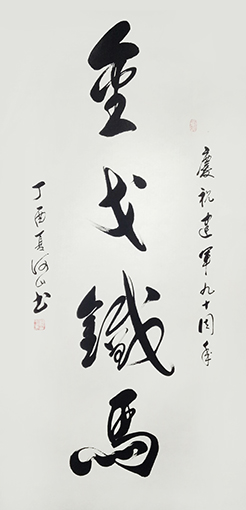 慶祝建軍九十周年
金戈鐵馬
丁酉夏 山书